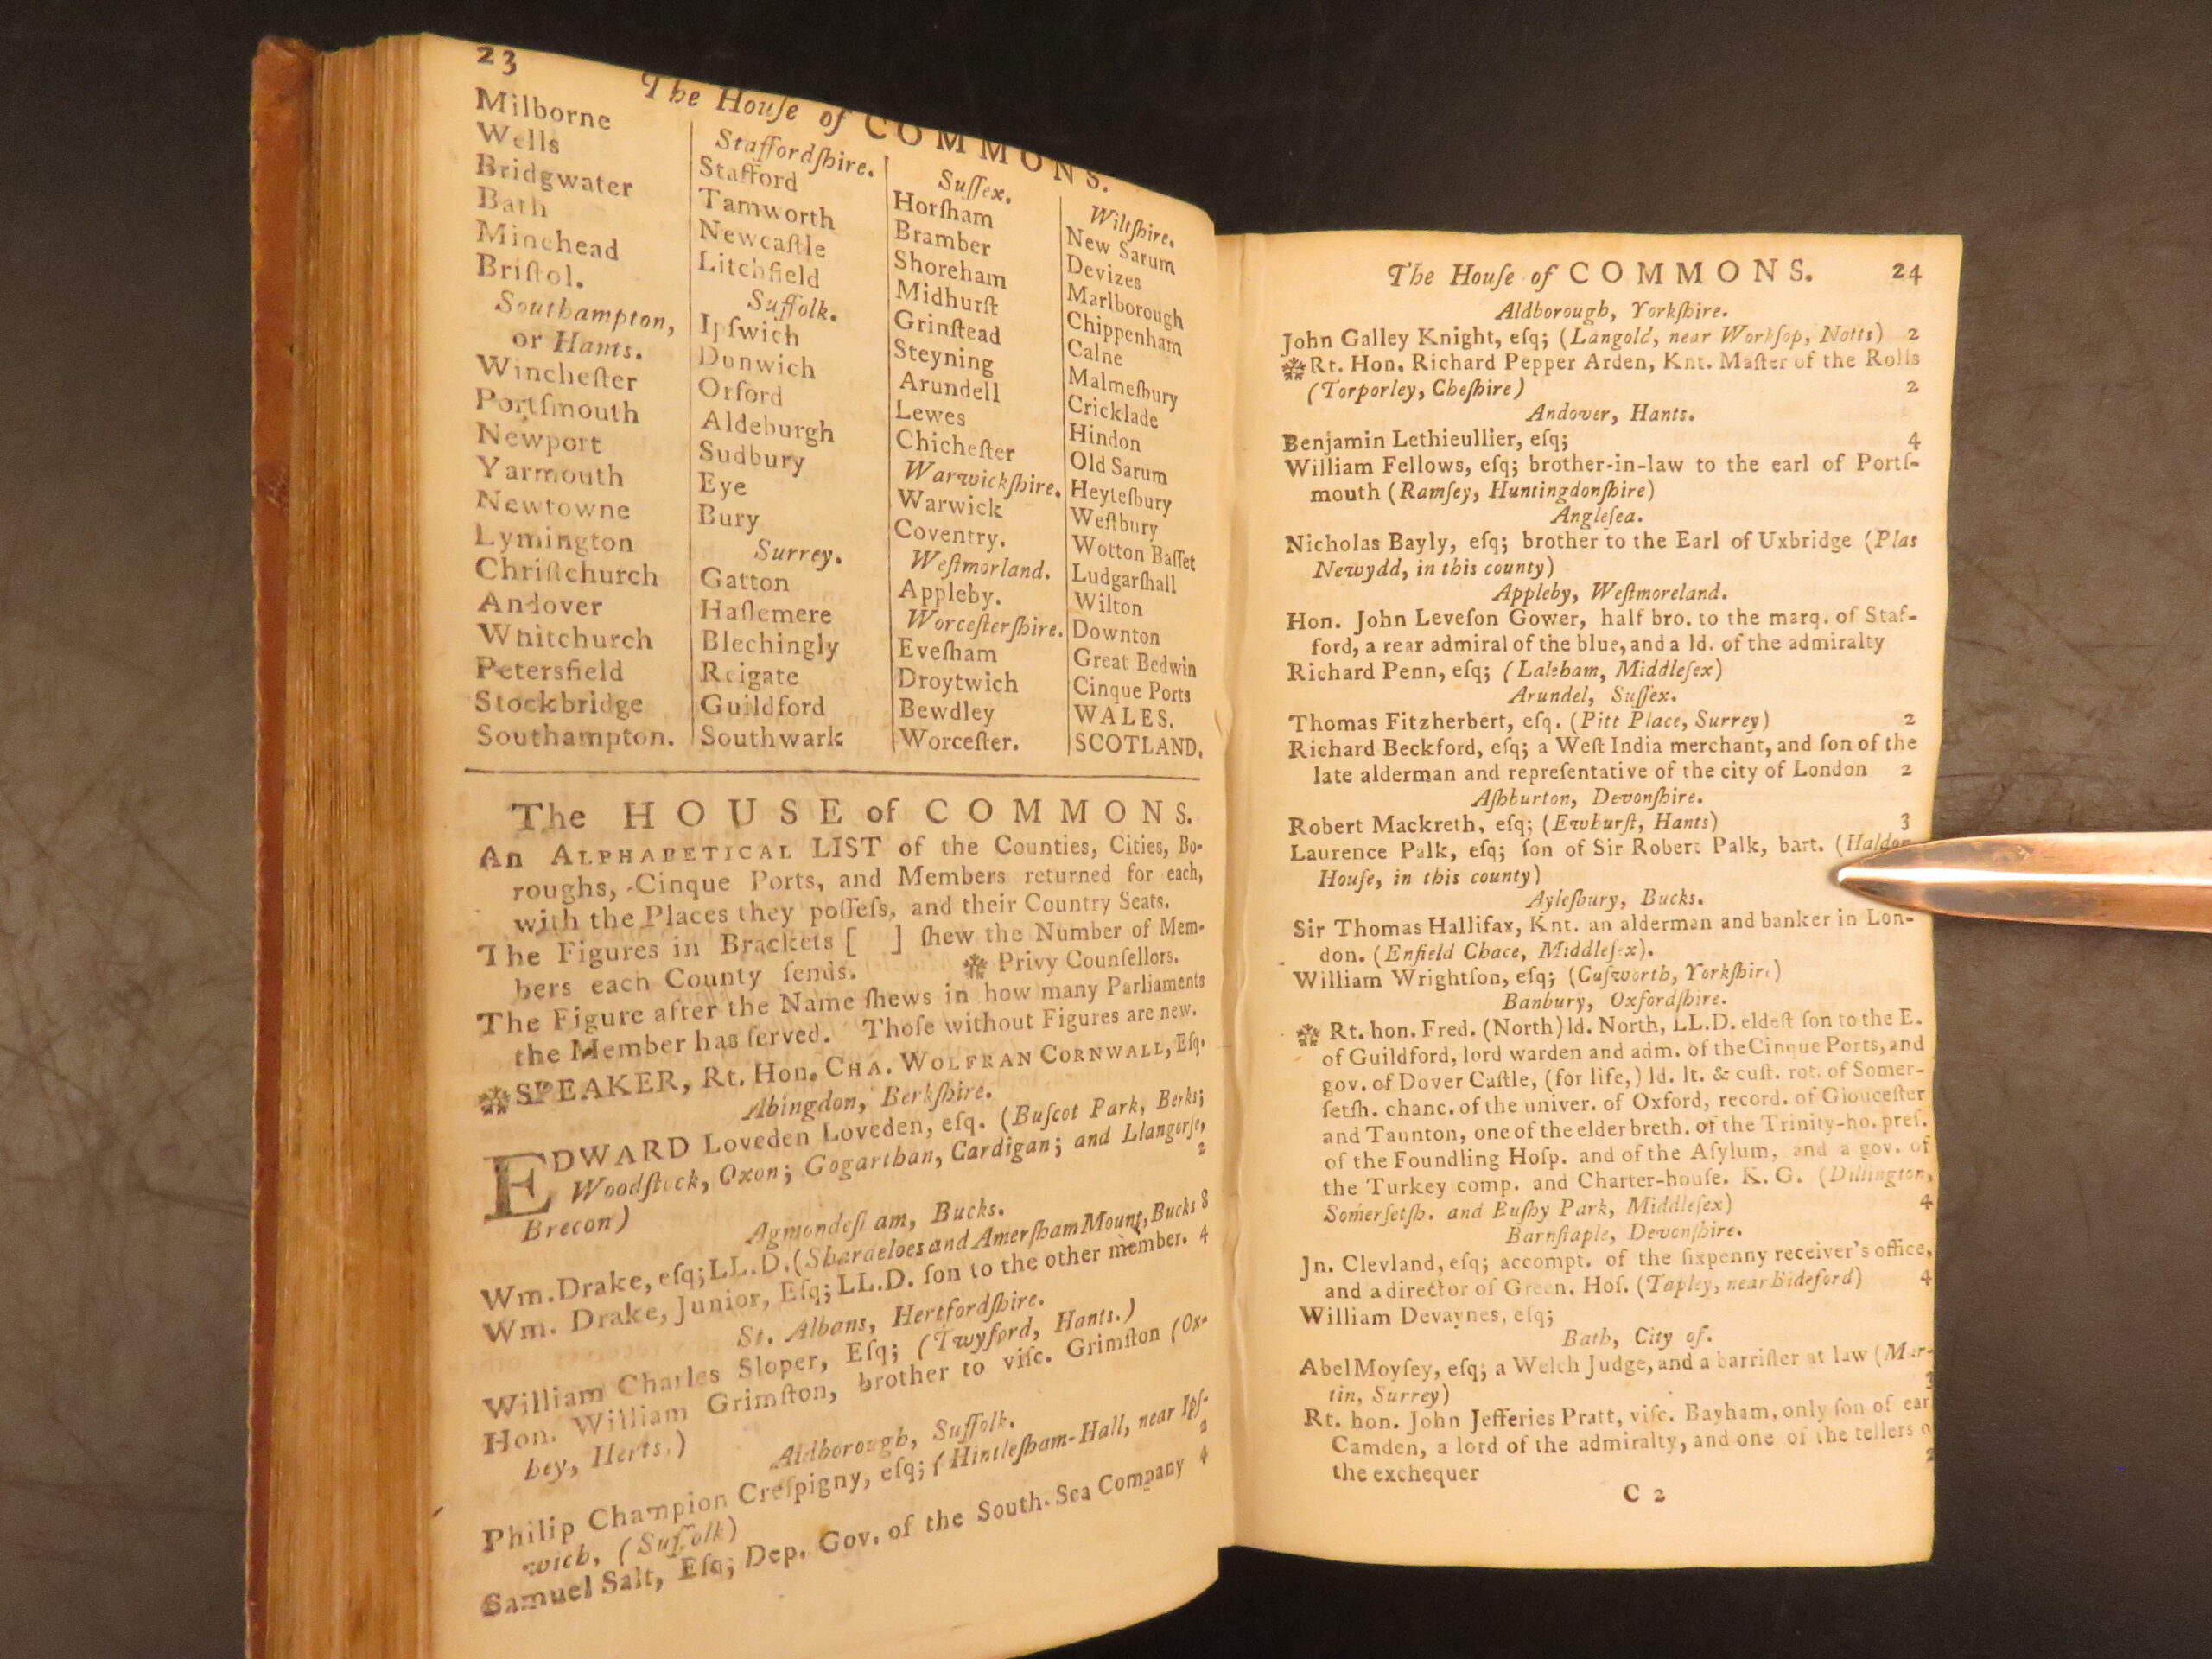 23
The Houſe of COMMONS.
Milborne
Wells
Bridgwater
Bath
Minehead
Briſtol.
Southampton,
or Hants.
Wincheſter
Portſmouth
Newport
Yarmouth
Newtowne
Lymington
Chriſtchurch
Andover
Whitchurch
Petersfield
Stockbridge
Southampton.
Staffordſhire.
Stafford
Tamworth
Newcaſtle
Litchfield
Suffolk.
Ipſwich
Dunwich
Orford
Aldeburgh
Sudbury
Eye
Bury
Surrey.
Gatton
Haſlemere
Blechingly
Reigate
Guildford
Southwark
Suſſex.
Horſham
Bramber
Shoreham
Midhurſt
Grinſtead
Steyning
Arundell
Lewes
Chicheſter
Warwickſhire.
Warwick
Coventry.
Weſtmorland.
Appleby.
Worceſterſhire.
Eveſham
Droytwich
Bewdley
Worceſter.
Wiltſhire.
New Sarum
Devizes
Marlborough
Chippenham
Calne
Malmeſbury
Cricklade
Hindon
Old Sarum
Heyteſbury
Weſtbury
Wotton Baſſet
Ludgarſhall
Wilton
Downton
Great Bedwin
Cinque Ports
WALES.
SCOTLAND.
The HOUSE of COMMONS.
An ALPHABETICAL LIST of the Counties, Cities, Bo-
roughs, Cinque Ports, and Members returned for each,
with the Places they poſſeſs, and their Country Seats.
The Figures in Brackets [ ] ſhew the Number of Mem-
bers each County ſends. ❇ Privy Counſellors.
The Figure after the Name ſhews in how many Parliaments
the Member has ſerved. Thoſe without Figures are new.
❇SPEAKER, Rt. Hon. CHA. WOLFRAN CORNWALL, Eſq.
Abingdon, Berkſhire.
EDWARD Loveden Loveden, eſq. (Buſcot Park, Berks;
Woodſtock, Oxon; Gogarthan, Cardigan; and Llangorſe,
Brecon) 2
Agmondeſham, Bucks.
Wm. Drake, eſq; LL.D. (Shardeloes and Amerſham Mount, Bucks 8
Wm. Drake, Junior, Eſq; LL.D. ſon to the other member. 4
St. Albans, Hertfordſhire.
William Charles Sloper, Eſq; (Twyford, Hants.)
Hon. William Grimſton, brother to viſc. Grimſton (Ox-
bey, Herts.)
Aldborough, Suffolk.
Philip Champion Creſpigny, eſq; (Hintleſham-Hall, near Ipſ-
wich, (Suffolk) 2
Samuel Salt, Eſq; Dep. Gov. of the South-Sea Company 4
The Houſe of COMMONS. 24
Aldborough, Yorkſhire.
John Galley Knight, eſq; (Langold, near Workſop, Notts) 2
❇Rt. Hon. Richard Pepper Arden, Knt. Maſter of the Rolls
(Torporley, Cheſhire) 2
Andover, Hants.
Benjamin Lethieullier, eſq; 4
William Fellows, eſq; brother-in-law to the earl of Portſ-
mouth (Ramſey, Huntingdonſhire)
Angleſea.
Nicholas Bayly, eſq; brother to the Earl of Uxbridge (Plas
Newydd, in this county)
Appleby, Weſtmoreland.
Hon. John Leveſon Gower, half bro. to the marq. of Staf-
ford, a rear admiral of the blue, and a ld. of the admiralty
Richard Penn, eſq; (Laleham, Middleſex)
Arundel, Suſſex.
Thomas Fitzherbert, eſq. (Pitt Place, Surrey) 2
Richard Beckford, eſq; a Weſt India merchant, and ſon of the
late alderman and repreſentative of the city of London 2
Aſhburton, Devonſhire.
Robert Mackreth, eſq; (Ewhurſt, Hants) 3
Laurence Palk, eſq; ſon of Sir Robert Palk, bart. (Haldon
Houſe, in this county)
Ayleſbury, Bucks.
Sir Thomas Hallifax, Knt. an alderman and banker in Lon-
don. (Enfield Chace, Middleſex).
William Wrightſon, eſq; (Cuſworth, Yorkſhire)
Banbury, Oxfordſhire.
❇ Rt. hon. Fred. (North) ld. North, LL.D. eldeſt ſon to the E.
of Guildford, lord warden and adm. of the Cinque Ports, and
gov. of Dover Caſtle, (for life,) ld. lt. & cuſt. rot. of Somer-
ſetſh. chanc. of the univer. of Oxford, record. of Glouceſter
and Taunton, one of the elder breth. of the Trinity-ho. preſ.
of the Foundling Hoſp. and of the Aſylum, and a gov. of
the Turkey comp. and Charter-houſe. K. G. (Dillington,
Somerſetſh. and Buſhy Park, Middleſex) 4
Barnſtaple, Devonſhire.
Jn. Clevland, eſq; accompt. of the ſixpenny receiver's office,
and a director of Green. Hoſ. (Tapley, near Bideford) 4
William Devaynes, eſq;
Bath, City of.
Abel Moyſey, eſq; a Welch Judge, and a barriſter at law (Mar-
tin, Surrey) 3
Rt. hon. John Jefferies Pratt, viſc. Bayham, only ſon of ear
Camden, a lord of the admiralty, and one of the tellers o
the exchequer 2
C 2